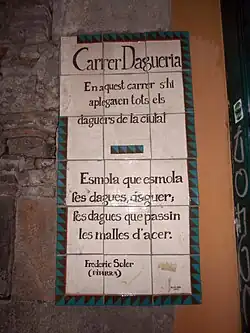 Carrer Dagueria
En aquest carrer s'hi
aplegaven tots els
daguers de la ciutat
Esmola que esmola
les dagues, daguer,
les dagues que passin
les malles d'acer.
Frederic Soler
(PITARRA)